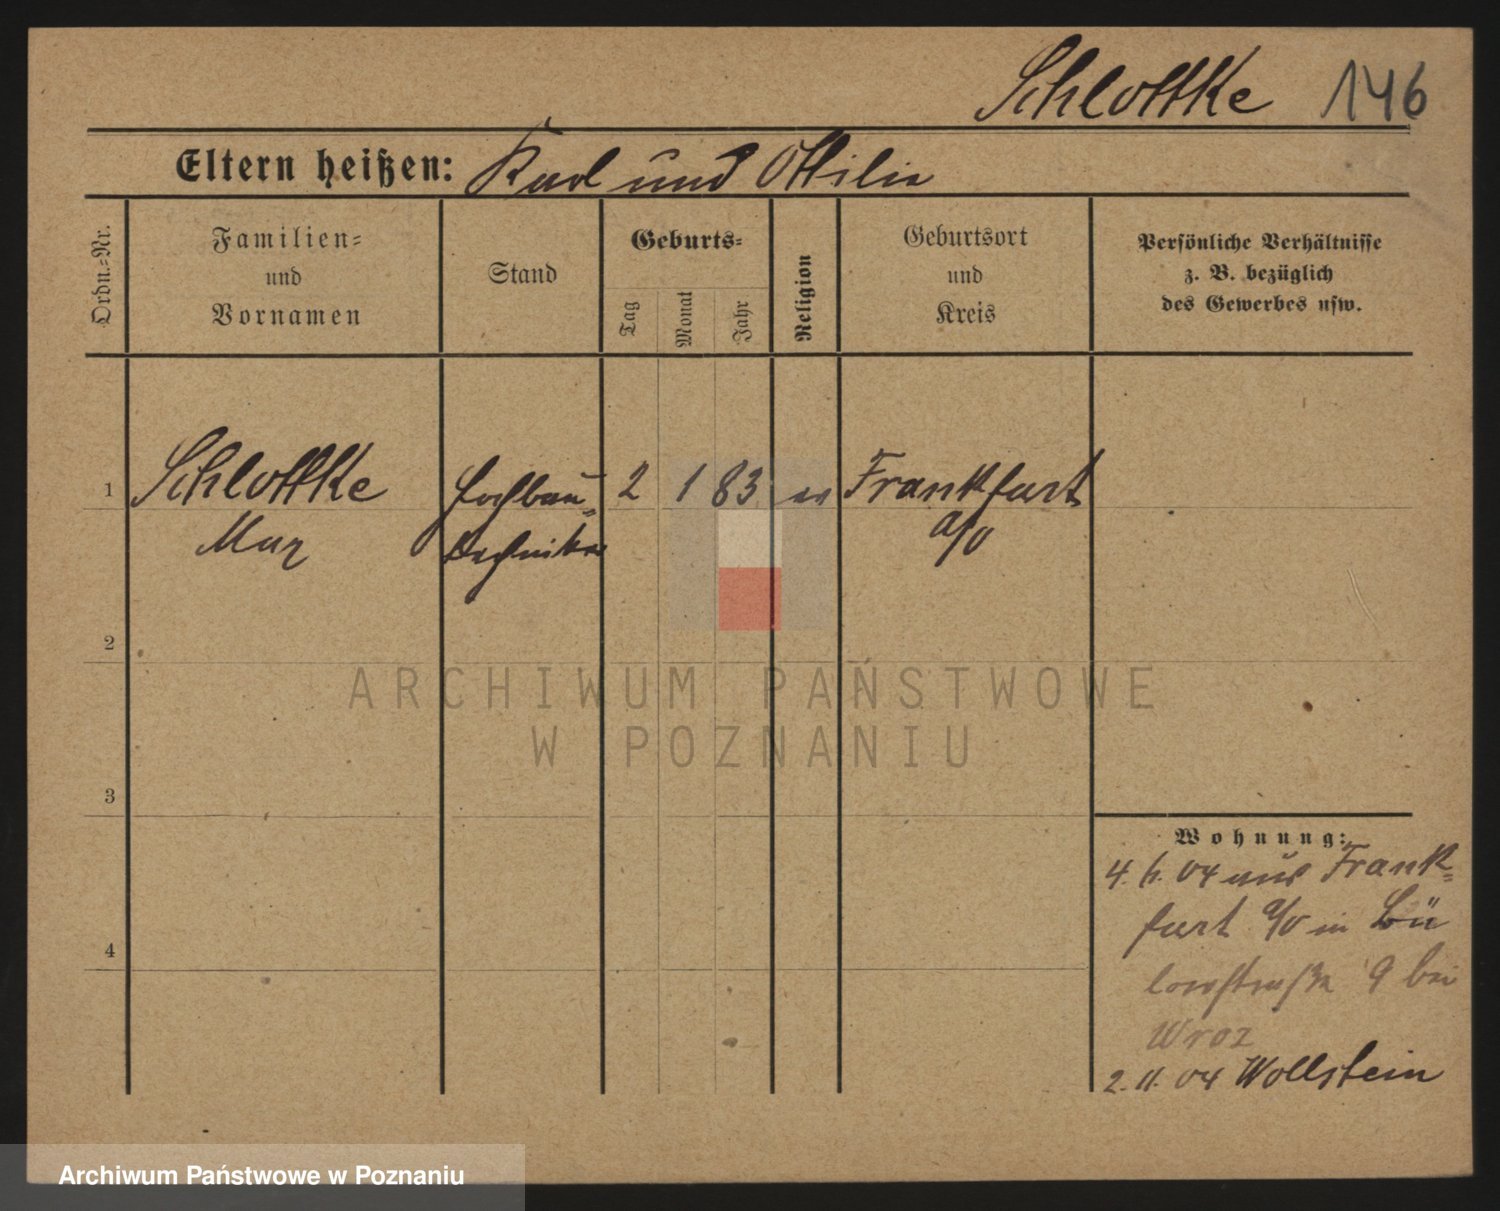 Schlottke 146
Eltern heißen: Karl und Ottilie
Ordn.=Nr.
Familien=
und
Vornamen
Stand
Geburts=
Tag
Monat
Jahr
Religion
Geburtsort
und
Kreis
Persönliche Verhältnisse
z. B. bezüglich
des Gewerbes usw.
1 Schlottke Hochbau= 2 1 83 ev Frankfurt
Max Techniker a/O
2
3
4
Wohnung:
4. 6. 04 aus Frank=
furt a/O in Bü
lowstraße 9 bei
Wroz
2. 11. 04 Wollstein
ARCHIWUM PAŃSTWOWE
W POZNANIU
Archiwum Państwowe w Poznaniu